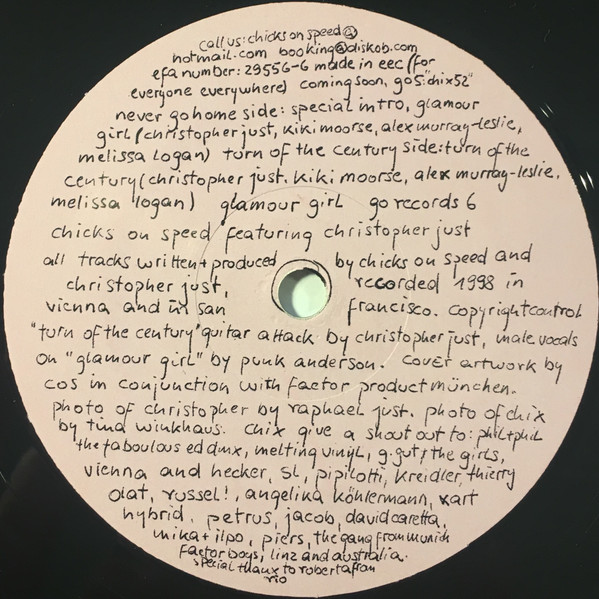 call us: chicks on speed@
hotmail.com booking@diskob.com
efa number: 29556-6 made in eec (for
everyone everywhere) coming soon, go5: "chix52"
never go home side: special intro, glamour
girl (christopher just, kiki moorse, alex murray-leslie,
melissa logan) turn of the century side: turn of the
century (christopher just. kiki moorse, alex murray-leslie,
melissa logan) glamour girl go records 6
chicks on speed featuring christopher just
all tracks written+produced by chicks on speed and
christopher just, recorded 1998 in
vienna and in san francisco. copyrightcontrol
"turn of the century" guitar attack by christopher just, male vocals
on "glamour girl" by punk anderson. cover artwork by
cos in conjunction with factor product münchen.
photo of christopher by raphael just. photo of chix
by tina winkhaus. chix give a shout out to: phil+phil
the faboulous ed dmx, melting vinyl, g.gut, the girls,
vienna and hecker, SL, pipilotti, kreidler, thierry
olat, russel!, angelika köhlermann, kart
hybrid. petrus, jacob, david caretta,
mika + ilpo, piers, the gang from munich
factor boys, linz and australia.
special thanx to roberta fran
rio